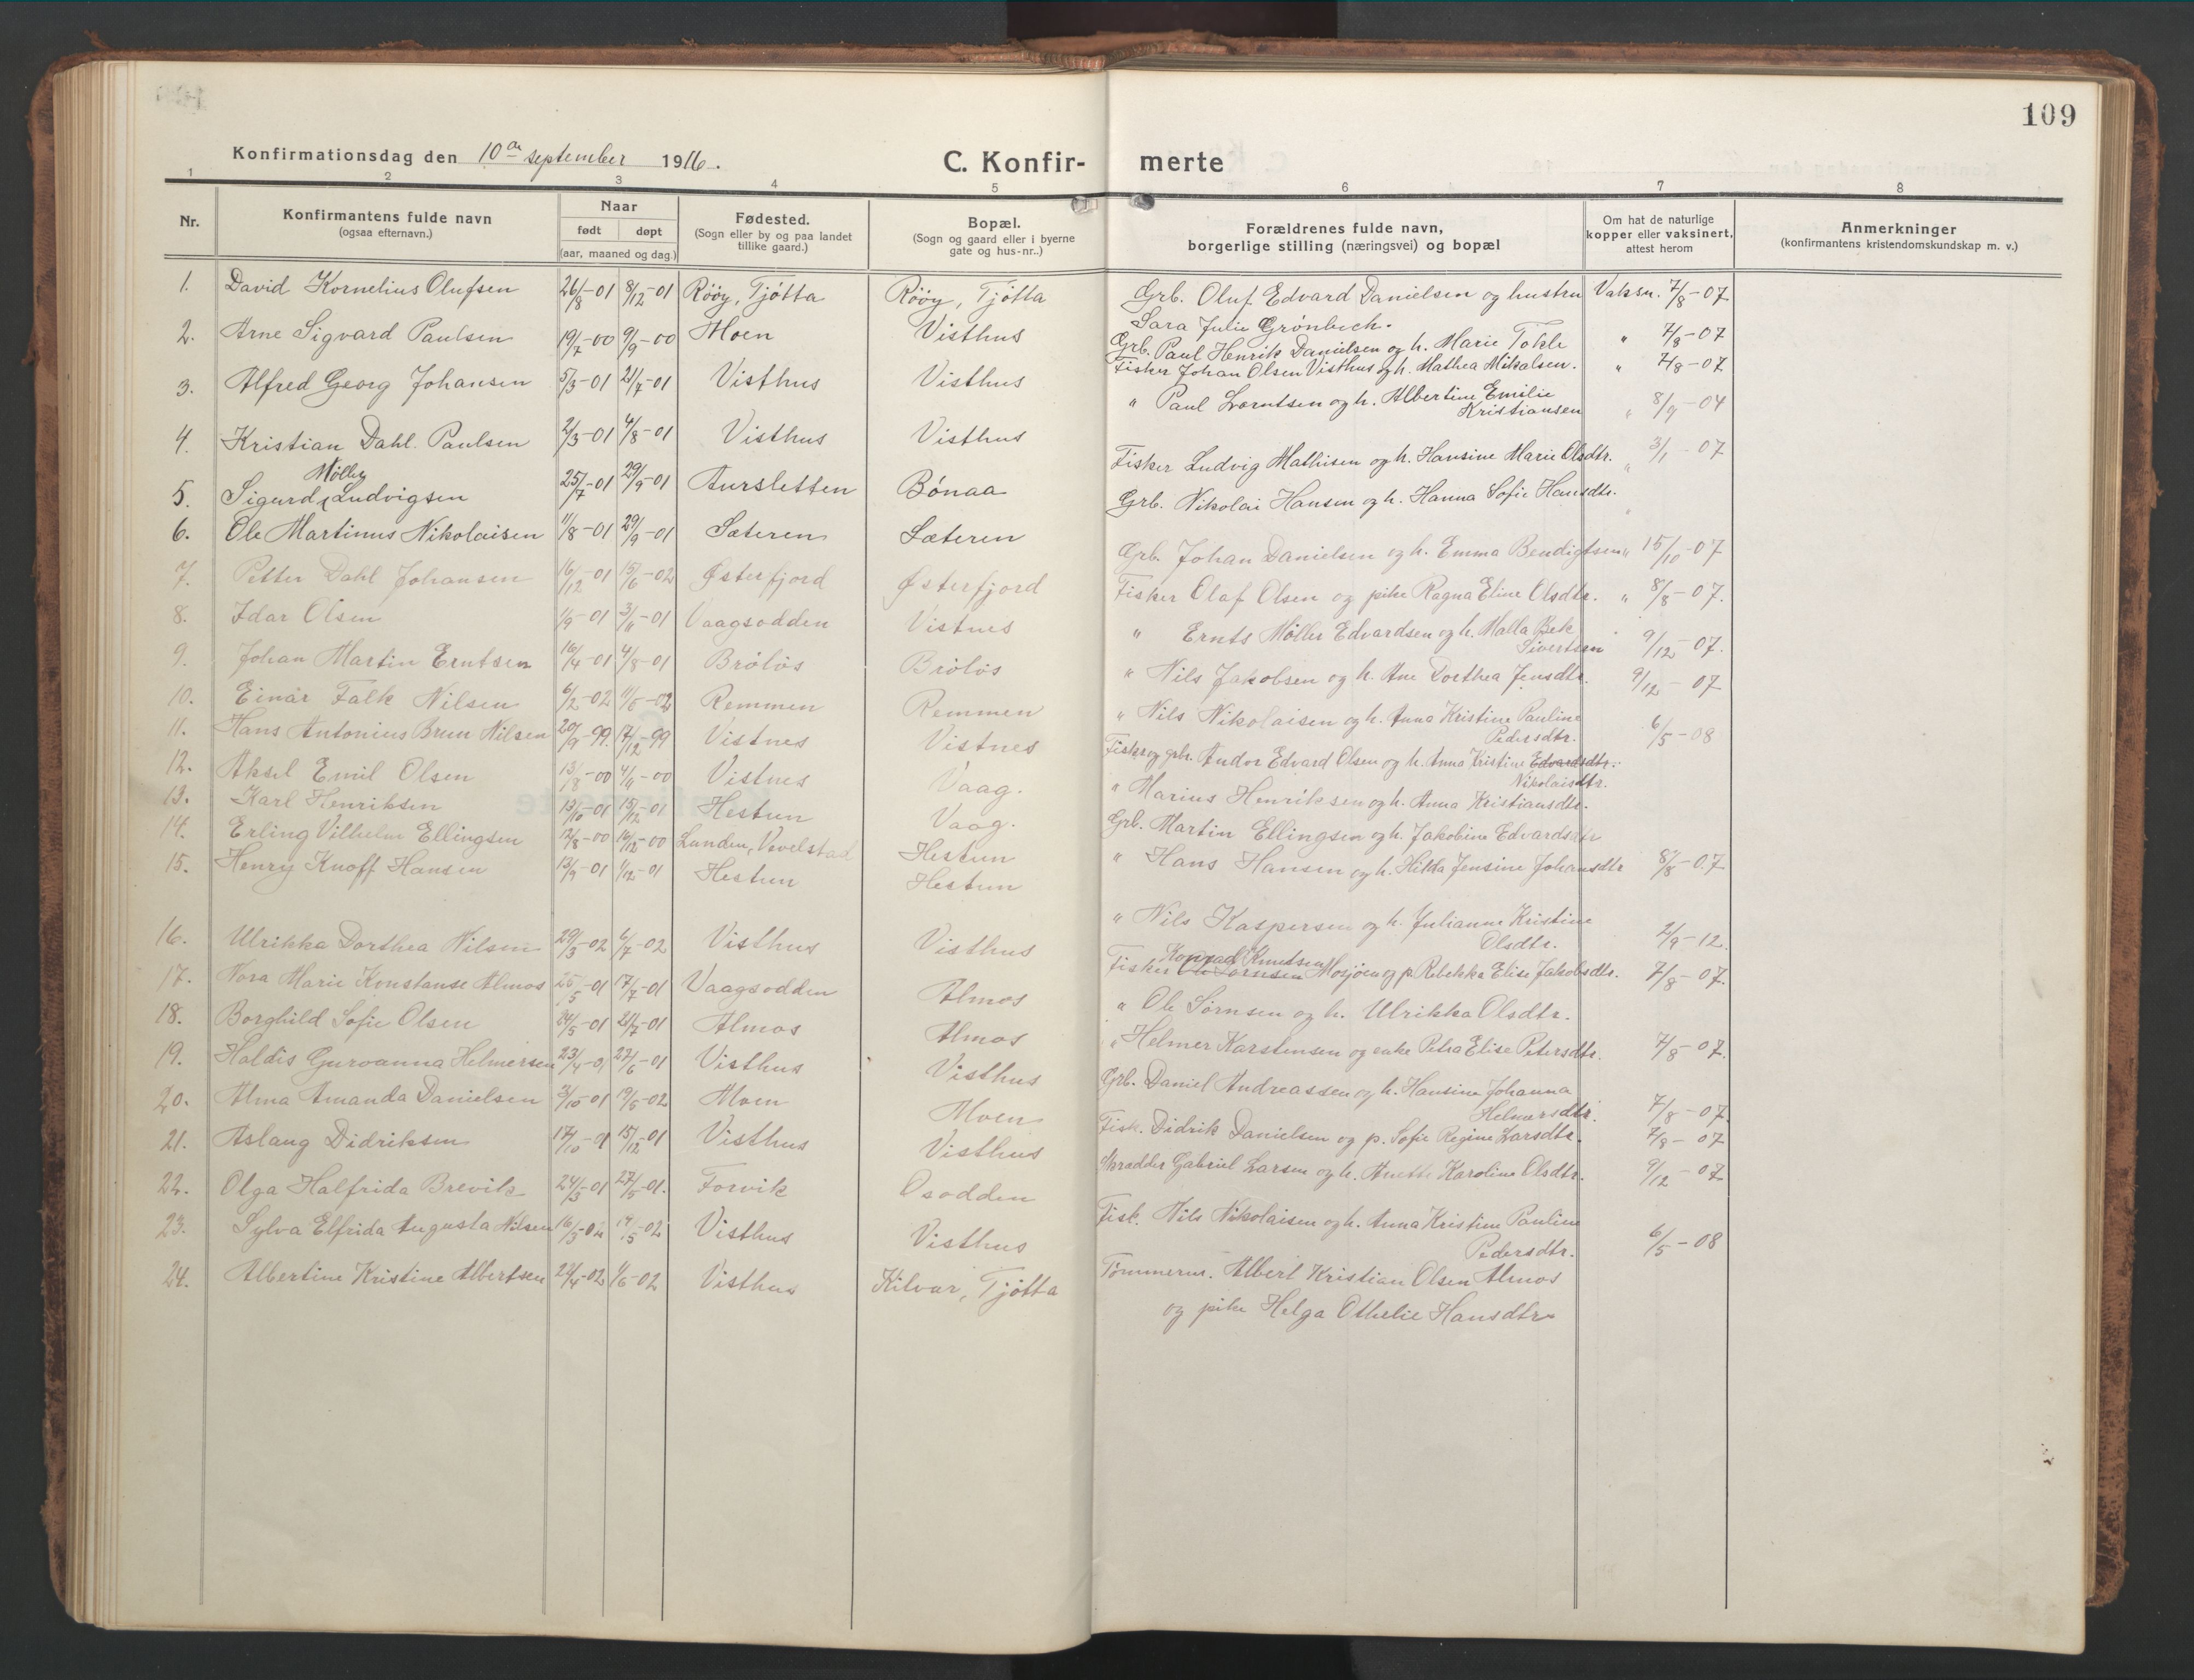 109
Konfirmationsdag den 10de september 1916.
C. Konfir- merte
1 2 3 4 5 6 7 8
Nr.
Konfirmantens fulde navn
(ogsaa efternavn.)
Naar
født døpt
(aar, maaned og dag.)
Fødested.
(Sogn eller by og paa landet
tillike gaard.)
Bopæl.
(Sogn og gaard eller i byerne
gate og hus-nr..)
Forældrenes fulde navn,
borgerlige stilling (næringsvei) og bopæl
Om hat de naturlige
kopper eller vaksinert,
attest herom
Anmerkninger
(konfirmantens kristendomskundskap m. v.)
1. David Kornelius Olufsen 26/8-01 8/12-01 Røøy, Tjøtta Røøy, Tjøtta Grb. Oluf Edvard Danielsen og hustru Vaksn. 7/8-07
Sara Julie Grønbech.
2. Arne Sigvard Paulsen 19/7-00 9/9-00 Moen Visthus Grb. Paul Henrik Danielsen og h. Marie Tokle " 7/8-07
3. Alfred Georg Johansen 5/3-01 21/7-01 Visthus Visthus Fisker Johan Olsen Visthus og h. Mathea Mikalsen. " 7/8-07
4. Kristian Dahl. Paulsen 2/3-01 4/8-01 Visthus Visthus " Paul Lorntsen og h. Albertine Emilie
Kristiansen " 8/9-04
Møller
5. Sigurd Ludvigsen 25/7-01 29/9-01 Aursletten Bønaa Fisker Ludvig Mathisen og h. Hansine Marie Olsdtr. " 3/1-07
6. Ole Martinus Nikolaisen 11/8-01 29/9-01 Sæteren Sæteren Grb. Nikolai Hansen og h. Hanna Sofie Hansdtr. "
7. Petter Dahl Johansen 16/12-01 15/6-02 Østerfjord Østerfjord Grb. Johan Danielsen og h. Emma Bendigtsen " 15/10-07
8. Idar Olsen 1/9-01 3/11-01 Vaagsodden Vistnes Fisker Olaf Olsen og pike Ragna Eline Olsdtr. " 8/8-07.
9. Johan Martin Erntsen 16/4-01 4/8-01 Brøløs Brøløs " Ernts Møller Edvardsen og h. Malla Bek
Sivertsen 9/12-07.
10. Einar Falk Nilsen 6/2-02 11/5-02 Remmen Remmen " Nils Jakobsen og h. Ane Dorthea Jensdtr. 9/12-07
11. Hans Antonius Brun Nilsen 20/9-99. 17/12-99 Vistnes Vistnes " Nils Nikolaisen og h. Anna Kristine Pauline
Pedersdtr. 6/5-08
12. Aksel Emil Olsen 13/8-00 4/11-00 Vistnes Vaag. Fisker og grbr. Andor Edvard Olsen og h. Anna Kristine Edvardsdtr.
Nikolaisdtr.
13. Karl Henriksen 13/10-01 15/12-01 Hestun Vaag. " Marius Henriksen og h. Anna Kristiansdtr.
14. Erling Vilhelm Ellingsen 12/8-00 16/12-00 Lunden, Vevelstad Hestun Grb. Martin Ellingsen og h. Jakobine Edvardsdtr
15. Henry Knoff Hansen 13/9-01 1/12-01 Hestun Hestun " Hans Hansen og h. Hilda Jensine Johansdtr 8/8-07
16. Ulrikka Dorthea Nilsen 29/3-02 6/7-02 Visthus Visthus " Nils Kaspersen og h. Julianne Kristine
Olsdtr. 2/9-12.
Konrad Knudsen
17. Nora Marie Konstanse Almos 25/5-01 17/7-01 Vaagsodden Almos Fisker Ole Sørnsen Mosjøen og p. Rebekka Elise Jakobsdtr. 7/8-07.
18. Borghild Sofie Olsen 24/5-01 21/7-01 Almos Almos " Ole Sørnsen og h. Ulrikka Olsdtr.
19. Haldis Guroanna Helmersen 23/4-01 27/6-01 Visthus Visthus " Helmer Karstensen og enke Petra Elise Petersdtr. 7/8-07.
20. Alma Amanda Danielsen 3/10-01 19/5-02 Moen Moen Grb. Daniel Andreassen og h. Hansine Johanna
Helmersdtr. 7/8-07
21. Aslaug Didriksen 17/10-01 15/12-01 Visthus Visthus Fisk. Didrik Danielsen og p. Sofie Regine Larsdtr. 7/8-07
22. Olga Halfrida Brevik 24/3-01 27/5-01. Forvik Osodden Skrædder Gabriel Larsen og h. Anette Karoline Olsdtr. 9/12-07
23. Sylva Elfrida Augusta Nilsen 16/3-02 19/5-02 Visthus Visthus Fisk. Nils Nikolaisen og h. Anna Kristine Pauline
Pedersdtr. 6/5-08
24. Albertine Kristine Albertsen 22/4-02 1/6-02 Visthus Kilvær, Tjøtta Tømmerm. Albert Kristian Olsen Almos
og pike Helga Othelie Hansdtr